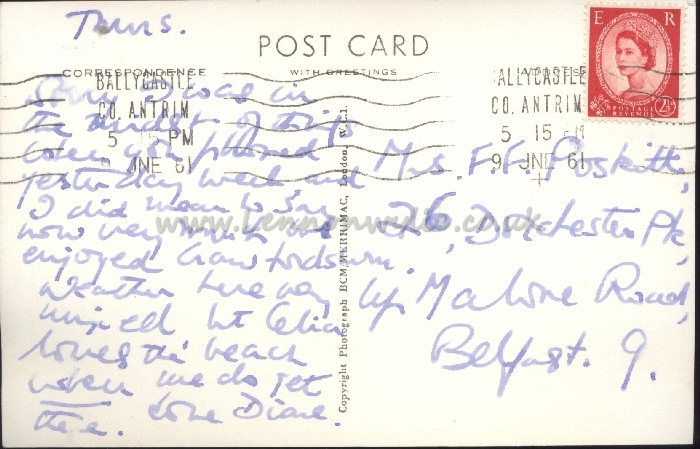 Thurs.
POST CARD
CORRESPONDENCE
WITH GREETINGS
ADDRESS
E R
POSTAGE
REVENUE
2½
BALLYCASTLE
CO. ANTRIM
5 15 PM
9 JNE 61
ALLYCASTLE
CO. ANTRIM
5 15 PM
9 JNE 61
Sorry I was in
the midst of things
when you phoned
yesterday week, and
I did mean to say
how very much we
enjoyed Crawfordsburn.
Weather here very
mixed but Celia
loves the beach
when we do get
there. Love Diane.
Mrs. F. F.
26, Dorchester Pk,
Up Malone Road,
Belfast. 9.
Copyright Photograph BCM/MERRIMAC, London, W.C.1.
www.lennonwylie.co.uk